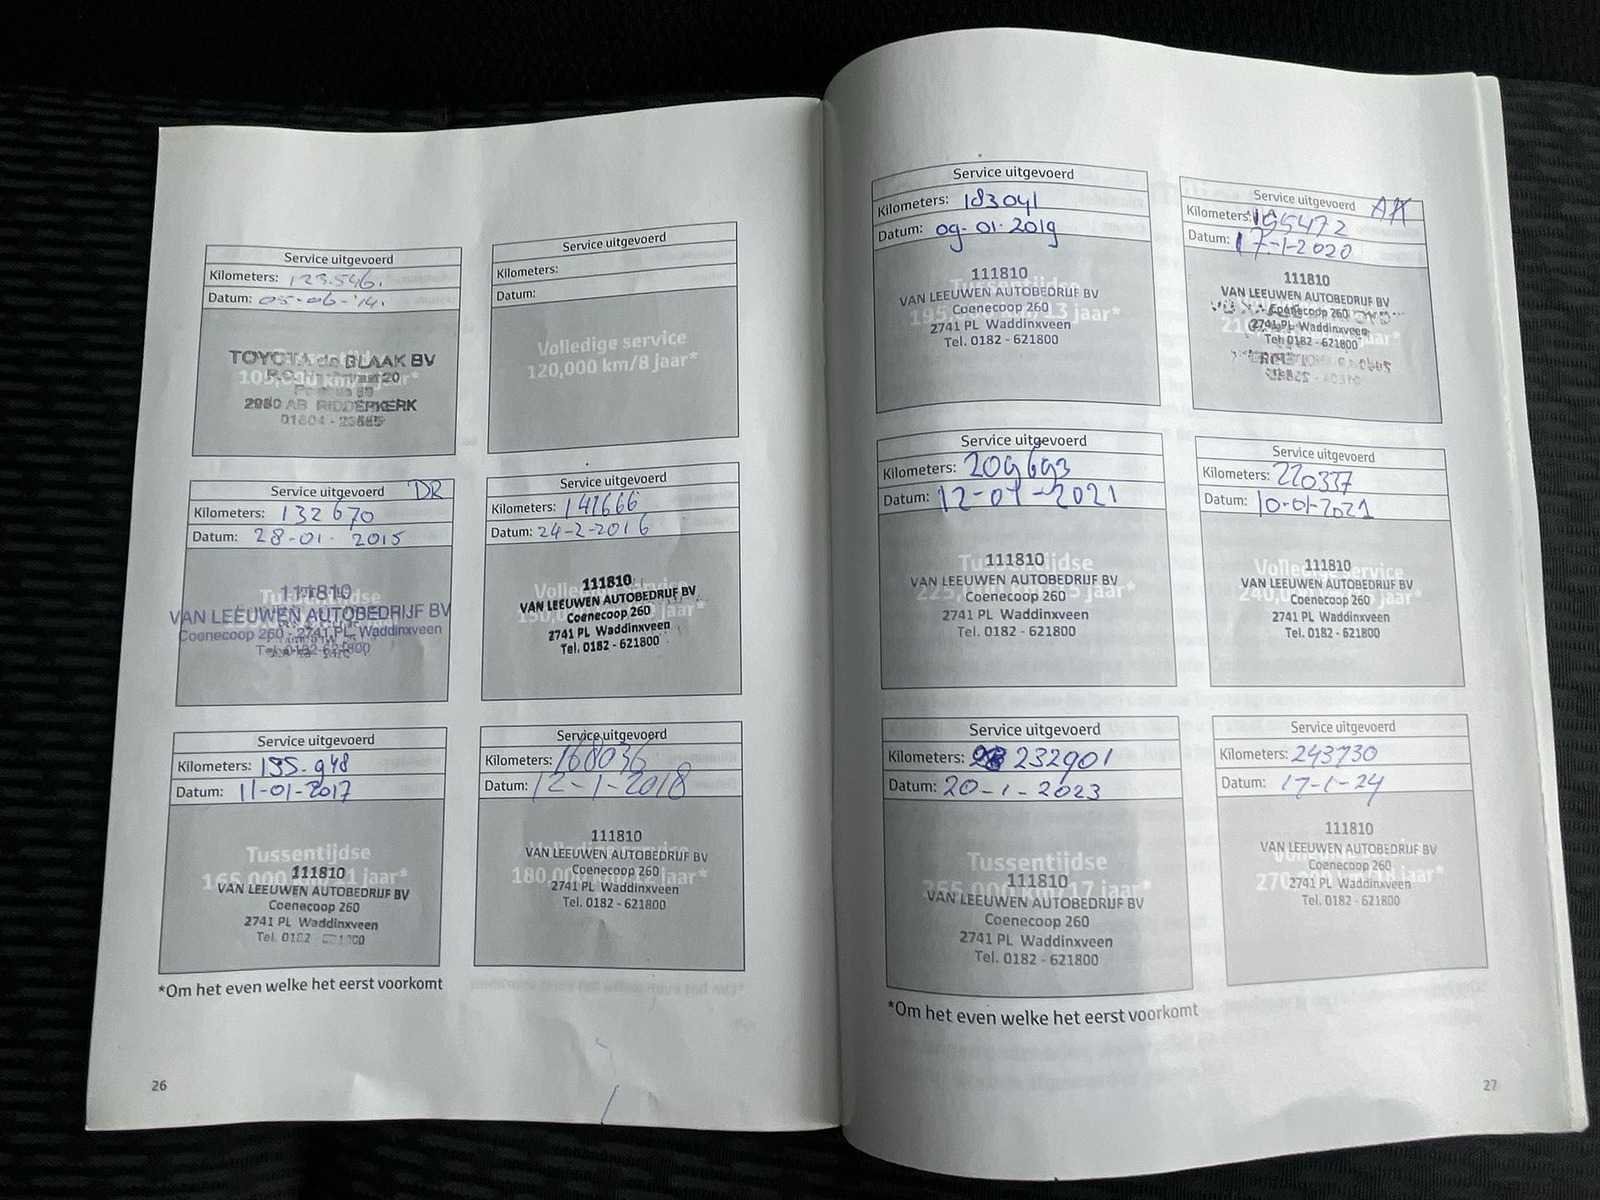 Service uitgevoerd
Kilometers: 123.546.
Datum: 05-06-'14.
TOYOTA de BLAAK BV
105,000 km/ jaar*
2980 AB RIDDERKERK
01804 -
Service uitgevoerd
Kilometers:
Datum:
Volledige service
120,000 km/8 jaar*
Service uitgevoerd DR
Kilometers: 132670
Datum: 28-01-2015
Tussentijdse
111810
VAN LEEUWEN AUTOBEDRIJF BV
Coenecoop 260 - 2741 PL Waddinxveen
Tel. 0182-621800
Service uitgevoerd
Kilometers: 141666
Datum: 24-2-2016
Volledige service
111810
VAN LEEUWEN AUTOBEDRIJF BV
Coenecoop 260
2741 PL Waddinxveen
Tel. 0182 - 621800
Service uitgevoerd
Kilometers: 155.948
Datum: 11-01-2017
Tussentijdse
165,000 km/ jaar*
111810
VAN LEEUWEN AUTOBEDRIJF BV
Coenecoop 260
2741 PL Waddinxveen
Tel. 0182 -
Service uitgevoerd
Kilometers: 168036
Datum: 12-1-2018
111810
Volledige service
VAN LEEUWEN AUTOBEDRIJF BV
Coenecoop 260
180,000 km/12 jaar*
2741 PL Waddinxveen
Tel. 0182 - 621800
*Om het even welke het eerst voorkomt
26
Service uitgevoerd
Kilometers: 183041
Datum: 09-01-2019
111810
Tussentijdse
VAN LEEUWEN AUTOBEDRIJF BV
Coenecoop 260
195,000 km/13 jaar*
2741 PL Waddinxveen
Tel. 0182 - 621800
Service uitgevoerd
Kilometers: 195472
Datum: 17-1-2020
111810
VAN LEEUWEN AUTOBEDRIJF BV
Coenecoop 260
2741 PL Waddinxveen
Tel. 0182 - 621800
Service uitgevoerd
Kilometers: 209693
Datum: 12-01-2021
111810
Tussentijdse
VAN LEEUWEN AUTOBEDRIJF BV
225,000 km/ jaar*
Coenecoop 260
2741 PL Waddinxveen
Tel. 0182 - 621800
Service uitgevoerd
Kilometers: 220337
Datum: 10-01-2021
111810
Volledige service
VAN LEEUWEN AUTOBEDRIJF BV
240,000 km/ jaar*
Coenecoop 260
2741 PL Waddinxveen
Tel. 0182 - 621800
Service uitgevoerd
Kilometers: 232901
Datum: 20-1-2023
Tussentijdse
111810
255,000 km/17 jaar*
VAN LEEUWEN AUTOBEDRIJF BV
Coenecoop 260
2741 PL Waddinxveen
Tel. 0182 - 621800
Service uitgevoerd
Kilometers: 243730
Datum: 17-1-24
111810
Volledige service
VAN LEEUWEN AUTOBEDRIJF BV
Coenecoop 260
270,000 km/18 jaar*
2741 PL Waddinxveen
Tel. 0182 - 621800
*Om het even welke het eerst voorkomt
27